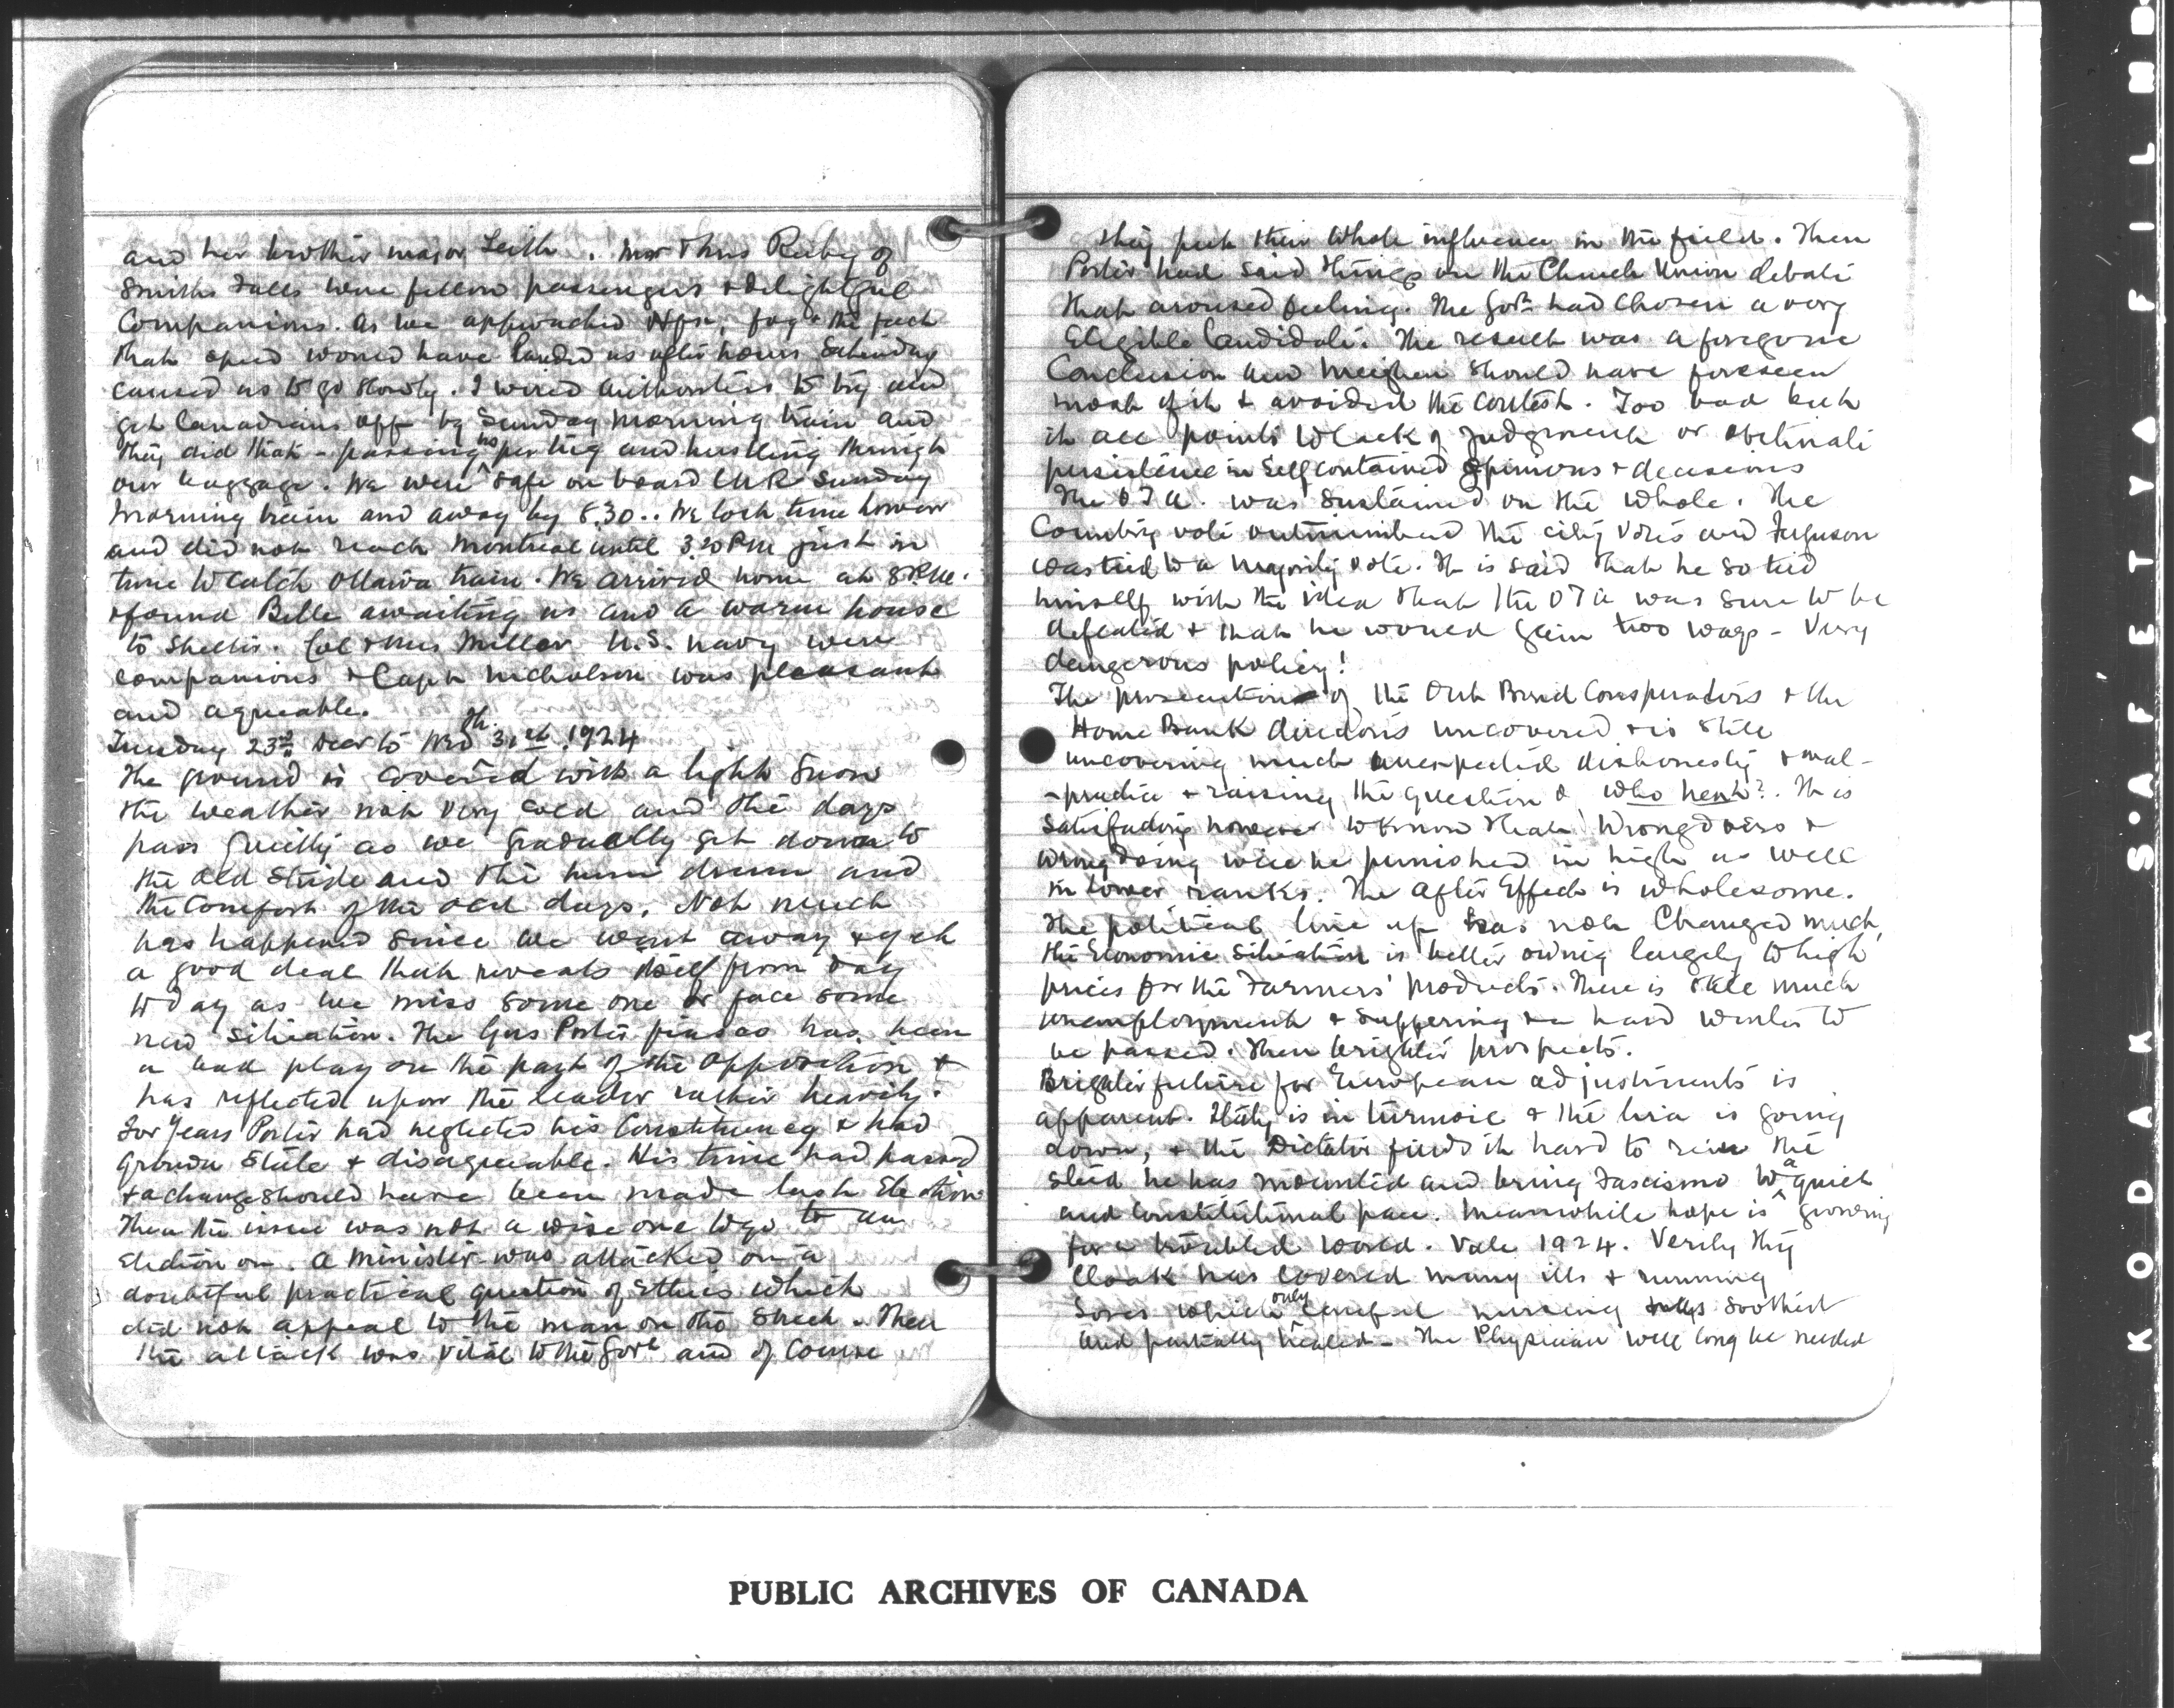 and her brother major Leith. Mr & Mrs Ruby of
Smiths Falls were fellow passengers & delightful
Companions. As we approached Hfx, fog & the fact
that speed would have landed us after hours Saturday
caused us to go slowly. I wired authorities to try and
get Canadians off by Sunday morning train and
they did that - passing no and hustling through
our luggage. We were safe on board CNR Sunday
morning train and away by 8.30.. We lost time however
and did not reach Montreal until 3.20 PM just in
time to catch Ottawa train. We arrived home at 8 P.M.
& found Belle awaiting us and a warm house
to shelter. Col & Mrs Miller U.S. navy were
companions & Capn Nicholson was pleasant
and agreeable.
Tuesday 23rd Decr to Wed 31st 1924
The ground is covered with a light snow
the weather not very cold and the days
pass quietly as we gradually get down to
the old stride and the hum drum and
the comfort of the old days. Not much
has happened since we went away & yet
a good deal that reveals itself from day
to day as we miss some one or face some
new situation. The Gus Porter fiasco has been
a bad play on the part of the opposition &
has reflected upon the leader rather heavily.
For years Porter had neglected his Constituency & had
grown stale & disagreeable. His time had passed
& a change should have been made last Election
Then the issue was not a wise one to go to an
Election on. A minister was attacked on a
doubtful practical question of Ethics which
did not appeal to the man on the Street. Then
the attack was vital to the Govt and of course
they put their whole influence in the field. Then
Porter had said things on the Church Union debate
that aroused feeling. The Govt had chosen a very
Eligible Candidate. The result was a foregone
Conclusion and Meighen should have foreseen
most of it & avoided the contest. Too bad but
it all points to lack of judgment or obstinate
persistence in Self contained opinions & decisions
The OTA. was sustained on the whole. The
Country vote outnumbered the city votes and Ferguson
was tied to a majority vote. It is said that he so tied
himself with the idea that the OTA was sure to be
defeated & that he would gain two ways - Very
dangerous policy!
The prosecution of the Ont Bond Conspirators & the
Home Bank directors uncovered & is still
uncovering much unexpected dishonesty & mal-
-practice & raising the question of who next?. It is
satisfactory however to know that wrongdoers &
wrongdoing will be punished in high as well
in lower ranks. The after Effect is wholesome.
The political line up has not Changed much,
the Economic situation is better owing largely to high
prices for the Farmers' products. There is still much
unemployment & suffering & a hard winter to
be passed. Then brighter prospects.
Brighter future for European adjustments is
apparent. Italy is in turmoil & the lira is going
down, & the Dictator finds it hard to rein the
steed he has mounted and bring Fascismo to a quiet
and Constitutional pace. Meanwhile hope is growing
for a troubled world. Vale 1924. Verily thy
Cloak has covered many ills & running
Sores which only careful nursing soothed
and partially healed - The Physician will long be needed
PUBLIC ARCHIVES OF CANADA
KODAK S·AFETYA FILM